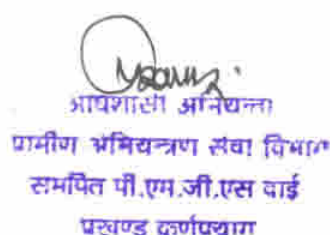 अधिशासी अभियन्ता
ग्रामीण अभियन्त्रण सेवा विभाग
समर्पित पी.एम.जी.एस वाई
प्रखण्ड कर्णप्रयाग